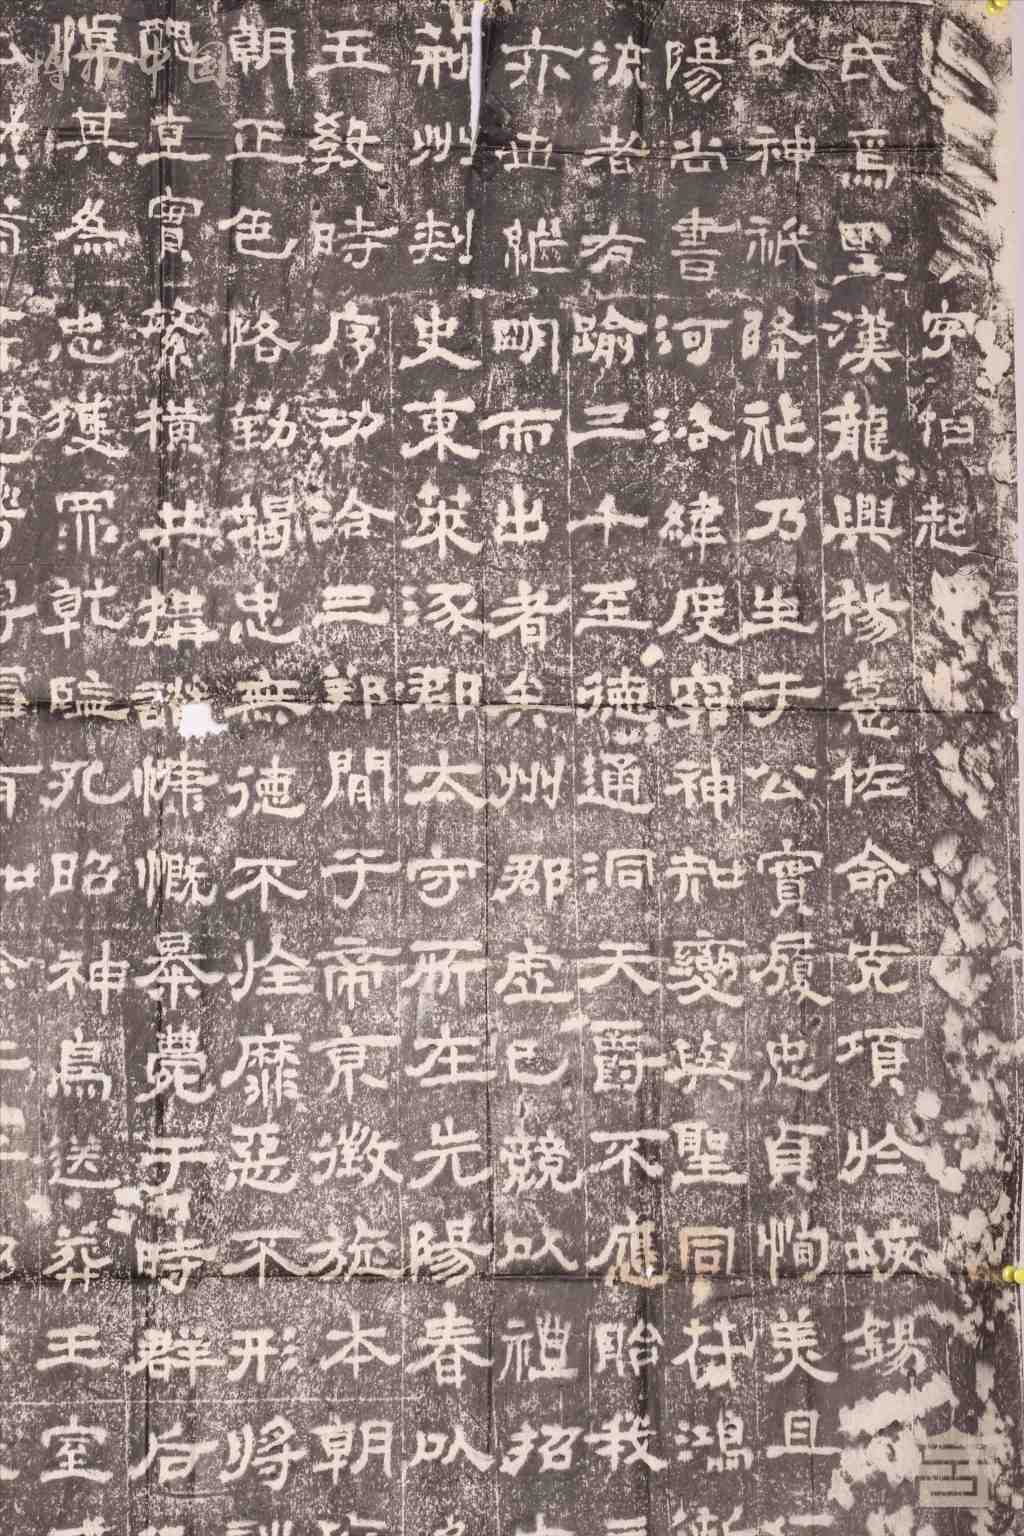 字伯起
氏焉聖漢龍興楊憙佐命克項於垓錫
以神祇降祉乃生于公實履忠貞恂美且
陽尚書河洛緯度窮神知變與聖同苻鴻
流者有踰三千至德通洞天爵不應貽我
亦世繼明而出者矣州郡虛己競以禮招
荊州刺史東萊涿郡太守所在先陽春以
五教時序功洽三邦聞于帝京徵旋本朝
朝正色恪勤竭忠無德不旌靡惡不形將
醜直實繁橫共構譖慷慨暴薨于時群后
悼其為忠獲罪乾臨孔昭神鳥送葬王室